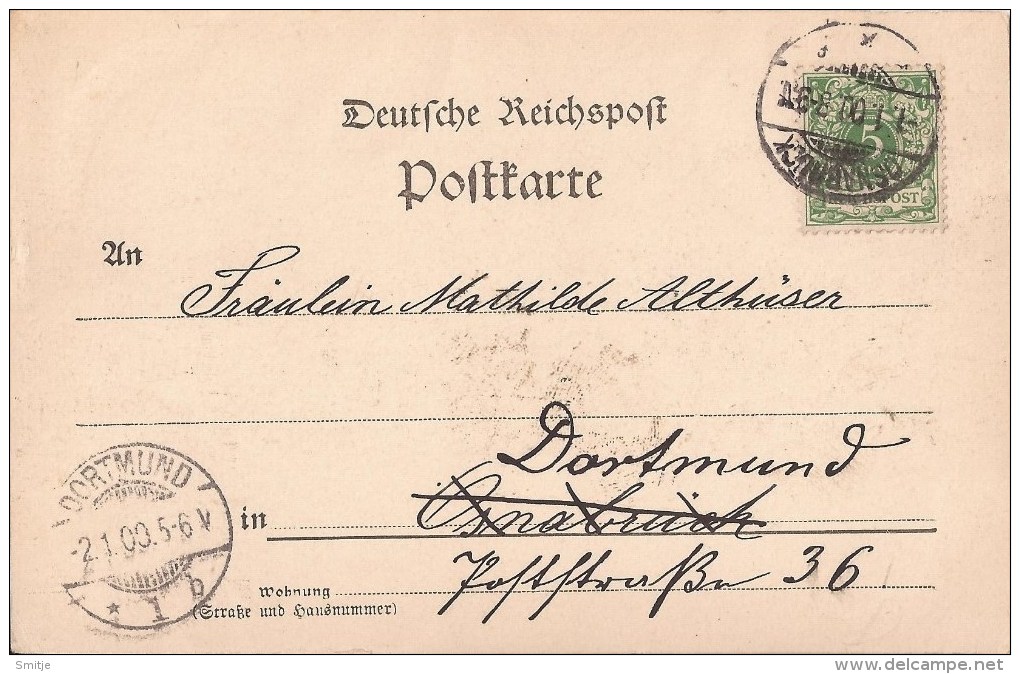 Deutsche Reichspost
Postkarte
5
REICHSPOST
OSNABRÜCK
An
Fräulein Mathilde Althüser
Dortmund
Osnabrück
in
Poststraße 36
Wohnung
(Straße und Hausnummer)
DORTMUND
-2.1.00.5-6V
* 1 b
Smitje
delcampe.net